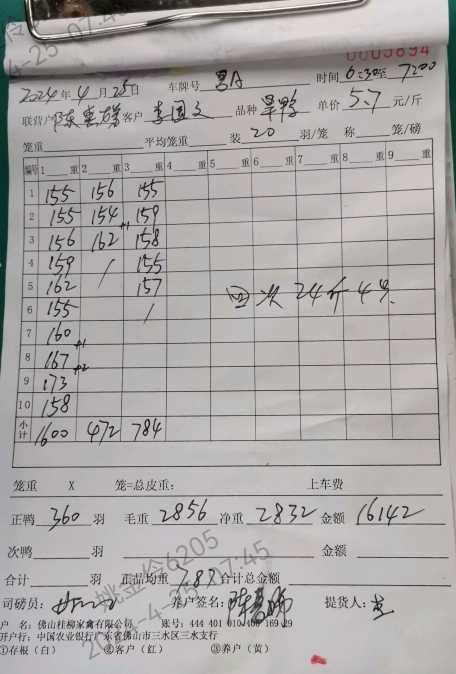 0005894
2024年4月25日 车牌号 粤A 时间 6:30至7:00
联营户 客户 李国文 品种 旱鸭 单价 5.7 元/斤
笼重 平均笼重 装 20 羽/笼 称 笼/磅
编号 1 重 2 重 3 重 4 重 5 重 6 重 7 重 8 重 9 重
1 155 156 155
2 155 154 159
3 156 162 +1 158
4 159 / 155
5 162 / 157
回次 24斤4只
6 155 /
7 160
8 167 +1
9 173 +2
10 158
小计 1600 472 784
笼重 X 笼=总皮重: 上车费
正鸭 360 羽 毛重 2856 净重 2832 金额 16142
次鸭 羽 金额
合计 羽 正品均重 7.87 合计总金额
司磅员: 养户签名: 提货人:
户 名: 佛山桂柳家禽有限公司 账号: 444 401 010 400 169 29
开户行: 中国农业银行广东省佛山市三水区三水支行
①存根（白） ②客户（红） ③养户（黄）
姚金伶6205
2024-4-25 07:45